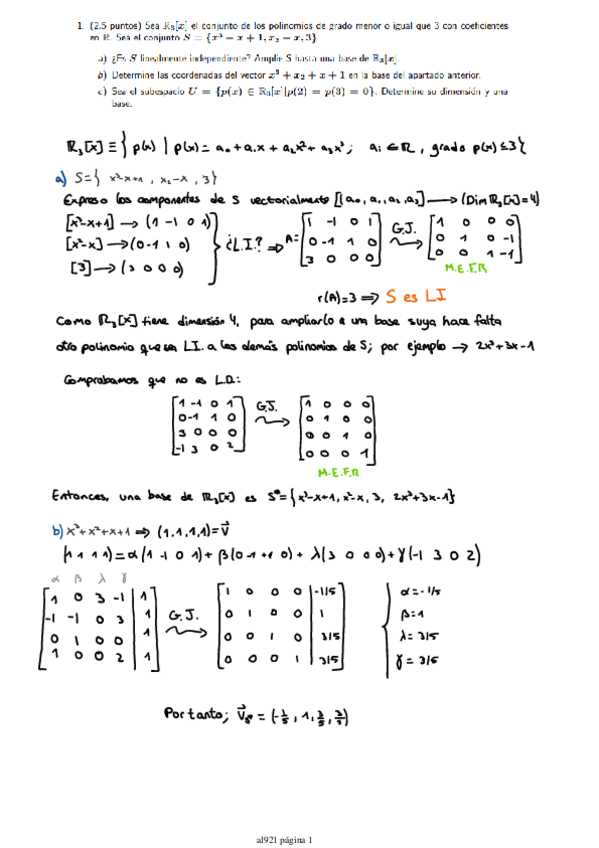 1. (2.5 puntos) Sea ℝ₃[x] el conjunto de los polinomios de grado menor o igual que 3 con coeficientes
en ℝ. Sea el conjunto S = {x³ − x + 1, x₂ − x, 3}
a) ¿Es S linealmente independiente? Amplíe S hasta una base de ℝ₃[x]
b) Determine las coordenadas del vector x³ + x₂ + x + 1 en la base del apartado anterior.
c) Sea el subespacio U = {p(x) ∈ ℝ₃[x]|p(2) = p(3) = 0}. Determine su dimensión y una
base.
ℝ₃[x] ≡ { p(x) | p(x) = a₀ + a₁x + a₂x² + a₃x³ ; aᵢ ∈ ℝ, grado p(x) ≤ 3 }
a) S = { x³-x+1 , x₂-x , 3 }
Expreso los componentes de S vectorialmente [(a₀, a₁, a₂, a₃] → (Dim ℝ₃[x] = 4)
[x³-x+1] → (1 -1 0 1)
[x²-x] → (0 -1 1 0)
[3] → (3 0 0 0)
¿L.I.? ⇒ A = [1 -1 0 1
0 -1 1 0
3 0 0 0]
G.J.
[1 0 0 0
0 1 0 -1
0 0 1 -1]
M.E.F.R
r(A)=3 ⇒ S es LI
Como ℝ₃[x] tiene dimensión 4, para ampliarlo a una base suya hace falta
otro polinomio que sea L.I. a los demás polinomios de S; por ejemplo → 2x³+3x-1
Comprobamos que no es L.D.:
[1 -1 0 1
0 -1 1 0
3 0 0 0
-1 3 0 2]
G.J.
[1 0 0 0
0 1 0 0
0 0 1 0
0 0 0 1]
M.E.F.R
Entonces, una base de ℝ₃[x] es S* = {x³-x+1, x²-x, 3, 2x³+3x-1}
b) x³+x²+x+1 ⇒ (1,1,1,1) = v⃗
(1 1 1 1) = α(1 -1 0 1) + β(0 -1 +1 0) + λ(3 0 0 0) + γ(-1 3 0 2)
α β λ γ
[1 0 3 -1 | 1
-1 -1 0 3 | 1
0 1 0 0 | 1
1 0 0 2 | 1]
G.J.
[1 0 0 0 | -1/5
0 1 0 0 | 1
0 0 1 0 | 3/5
0 0 0 1 | 3/5]
α = -1/5
β = 1
λ = 3/5
γ = 3/5
Por tanto; v⃗ₛ* = (-1/5, 1, 3/5, 3/5)
al921 página 1